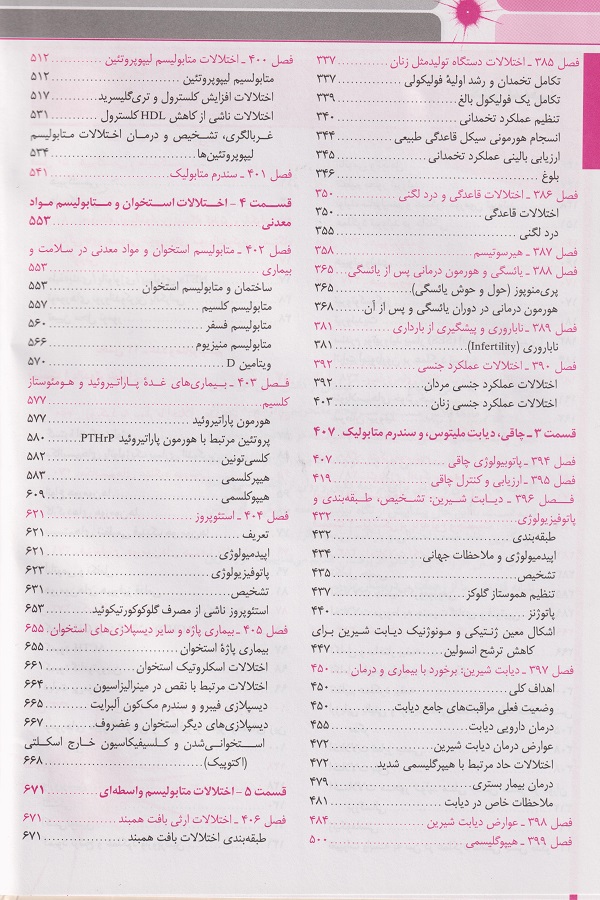 فصل ۳۸۵ ـ اختلالات دستگاه تولیدمثل زنان ........ ۳۳۷
تکامل تخمدان و رشد اولیهٔ فولیکولی ........ ۳۳۷
تکامل یک فولیکول بالغ ........ ۳۳۹
تنظیم عملکرد تخمدانی ........ ۳۴۰
انسجام هورمونی سیکل قاعدگی طبیعی ........ ۳۴۴
ارزیابی بالینی عملکرد تخمدانی ........ ۳۴۵
بلوغ ........ ۳۴۶
فصل ۳۸۶ ـ اختلالات قاعدگی و درد لگنی ........ ۳۵۰
اختلالات قاعدگی ........ ۳۵۰
درد لگنی ........ ۳۵۵
فصل ۳۸۷ ـ هیرسوتیسم ........ ۳۵۸
فصل ۳۸۸ ـ یائسگی و هورمون درمانی پس از یائسگی ... ۳۶۵
پری‌منوپوز (حول و حوش یائسگی) ........ ۳۶۵
هورمون درمانی در دوران یائسگی و پس از آن ........ ۳۶۸
فصل ۳۸۹ ـ ناباروری و پیشگیری از بارداری ........ ۳۸۱
ناباروری (Infertility) ........ ۳۸۱
فصل ۳۹۰ ـ اختلالات عملکرد جنسی ........ ۳۹۲
اختلالات عملکرد جنسی مردان ........ ۳۹۲
اختلالات عملکرد جنسی زنان ........ ۴۰۳
قسمت ۳ ـ چاقی، دیابت ملیتوس، و سندرم متابولیک . ۴۰۷
فصل ۳۹۴ ـ پاتوبیولوژی چاقی ........ ۴۰۷
فصل ۳۹۵ ـ ارزیابی و کنترل چاقی ........ ۴۱۹
فصل ۳۹۶ ـ دیابت شیرین: تشخیص، طبقه‌بندی و
پاتوفیزیولوژی ........ ۴۳۲
طبقه‌بندی ........ ۴۳۲
اپیدمیولوژی و ملاحظات جهانی ........ ۴۳۴
تشخیص ........ ۴۳۵
تنظیم هموستاز گلوکز ........ ۴۳۷
پاتوژنز ........ ۴۴۰
اشکال معین ژنتیکی و مونوژنیک دیابت شیرین برای
کاهش ترشح انسولین ........ ۴۴۷
فصل ۳۹۷ ـ دیابت شیرین: برخورد با بیماری و درمان .... ۴۵۰
اهداف کلی ........ ۴۵۰
وضعیت فعلی مراقبت‌های جامع دیابت ........ ۴۵۰
درمان دارویی دیابت ........ ۴۵۵
عوارض درمان دیابت شیرین ........ ۴۷۲
اختلالات حاد مرتبط با هیپرگلیسمی شدید ........ ۴۷۲
درمان بیمار بستری ........ ۴۷۹
ملاحظات خاص در دیابت ........ ۴۸۱
فصل ۳۹۸ ـ عوارض دیابت شیرین ........ ۴۸۴
فصل ۳۹۹ ـ هیپوگلیسمی ........ ۵۰۰
فصل ۴۰۰ ـ اختلالات متابولیسم لیپوپروتئین ........ ۵۱۲
متابولسیم لیپوپروتئین ........ ۵۱۲
اختلالات افزایش کلسترول و تری‌گلیسرید ........ ۵۱۷
اختلالات ناشی از کاهش HDL کلسترول ........ ۵۳۱
غربالگری، تشخیص و درمان اختلالات متابولیسم
لیپوپروتئین‌ها ........ ۵۳۴
فصل ۴۰۱ ـ سندرم متابولیک ........ ۵۴۱
قسمت ۴ ـ اختلالات استخوان و متابولیسم مواد
معدنی ........ ۵۵۳
فصل ۴۰۲ ـ متابولیسم استخوان و مواد معدنی در سلامت و
بیماری ........ ۵۵۳
ساختمان و متابولیسم استخوان ........ ۵۵۳
متابولیسم کلسیم ........ ۵۵۷
متابولیسم فسفر ........ ۵۶۰
متابولیسم منیزیوم ........ ۵۶۶
ویتامین D ........ ۵۷۰
فصل ۴۰۳ ـ بیماری‌های غدهٔ پاراتیروئید و هومئوستاز
کلسیم ........ ۵۷۷
هورمون پاراتیروئید ........ ۵۷۷
پروتئین مرتبط با هورمون پاراتیروئید PTHrP ........ ۵۸۰
کلسی‌تونین ........ ۵۸۲
هیپرکلسمی ........ ۵۸۳
هیپوکلسمی ........ ۶۰۹
فصل ۴۰۴ ـ استئوپروز ........ ۶۲۱
تعریف ........ ۶۲۱
اپیدمیولوژی ........ ۶۲۱
پاتوفیزیولوژی ........ ۶۲۳
تشخیص ........ ۶۳۱
استئوپروز ناشی از مصرف گلوکوکورتیکوئید ........ ۶۵۳
فصل ۴۰۵ ـ بیماری پاژه و سایر دیسپلازی‌های استخوان . ۶۵۵
بیماری پاژهٔ استخوان ........ ۶۵۵
اختلالات اسکلروتیک استخوان ........ ۶۶۱
اختلالات مرتبط با نقص در مینرالیزاسیون ........ ۶۶۴
دیسپلازی فیبرو و سندرم مک‌کون آلبرایت ........ ۶۶۵
دیسپلازی‌های دیگر استخوان و غضروف ........ ۶۶۷
استخوانی‌شدن و کلسیفیکاسیون خارج اسکلتی
(اکتوپیک) ........ ۶۶۸
قسمت ۵ ـ اختلالات متابولیسم واسطه‌ای ........ ۶۷۱
فصل ۴۰۶ ـ اختلالات ارثی بافت همبند ........ ۶۷۱
طبقه‌بندی اختلالات بافت همبند ........ ۶۷۱